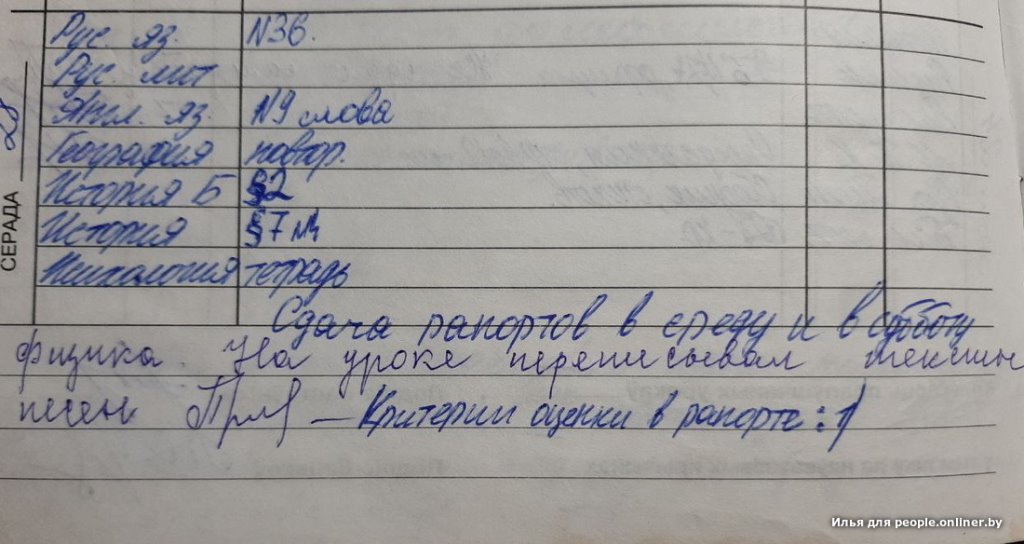 Рус. яз. N36.
Рус. лит
Англ. яз. N9 слова
География повтор.
История Б §2
История §7
Психология тетрадь
СЕРАДА 28
Сдача рапортов в среду и в субботу
физика. На уроке переписывал тексты
песен — Критерии оценки в рапорте: 1)
Илья для people.onliner.by